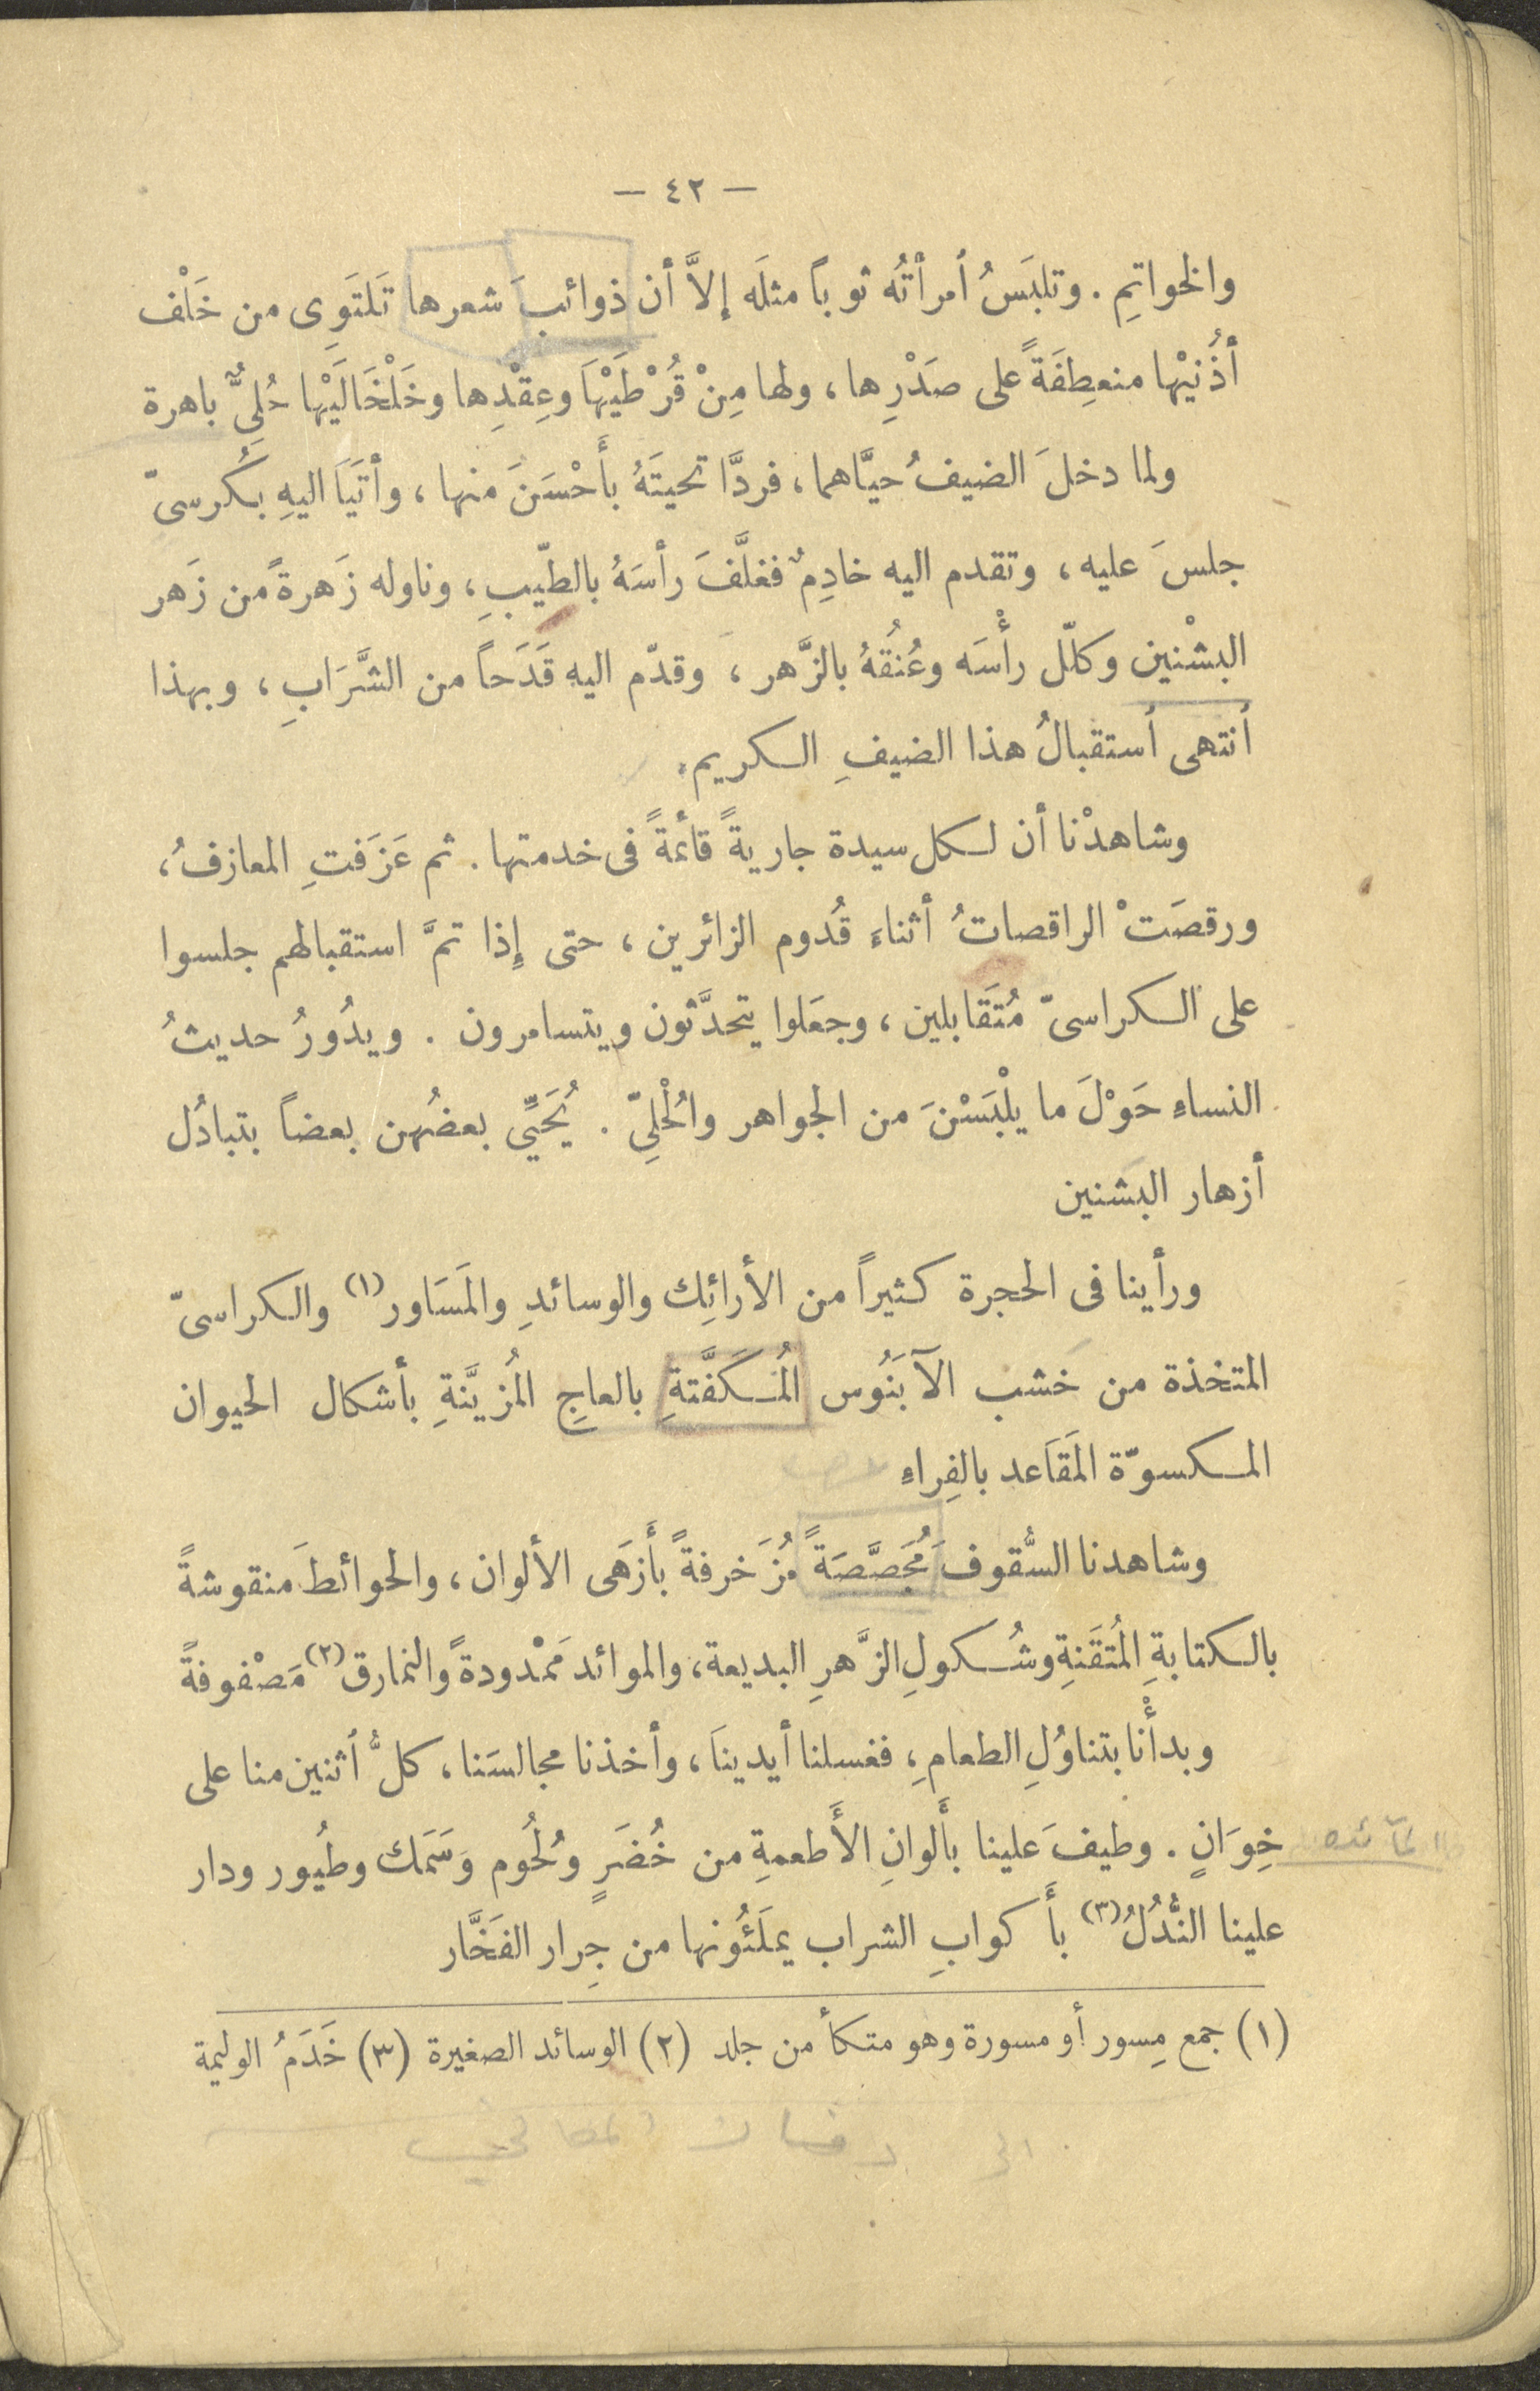 — ٤٢ —
والخواتمِ. وتلبَسُ أمرأتُه ثوباً مثلَه إلاَّ أن ذوائبَ شعرها تَلتَوِى من خَلْف
أذُنيْها منعطِفَةً على صَدْرِها، ولها مِنْ قُرْطَيْهاَ وعِقْدِها وخَلْخَالَيْها حُلِىٌّ باهرة
ولما دخلَ الضيفُ حيَّاهما، فردَّا تحيتَهُ بأَحْسَنَ منها، وأتَياَ اليهِ بكُرسىّ
جلسَ عليه، وتقدم اليه خادِمٌ فغلَّفَ رأسَهُ بالطّيبِ، وناوله زَهرةً من زَهر
البشْنين وكلّل رأْسَه وعُنُقهُ بالزَّهر، وقدّم اليه قَدَحاً من الشَّرَابِ، وبهذا
أنتهى أستقبالُ هذا الضيفِ الكريم.
وشاهدْنا أن لكل سيدة جاريةً قائمةً فى خدمتها. ثم عَزَفتِ المعازفُ،
ورقصَتْ الراقصاتُ أثناءَ قُدوم الزائرين، حتى إِذا تمَّ استقبالهم جلسوا
على الكراسىّ مُتَقابلين، وجعَلوا يتحدَّثون ويتسامرون. ويدُورُ حديثُ
النساءِ حَوْلَ ما يلْبَسْنَ من الجواهر والحُلْىِّ. يُحَيِّى بعضُهن بعضاً بتبادُل
أزهار البشنين
ورأينا فى الحجرة كثيراً من الأرائِك والوسائدِ والمَسَاور(١) والكراسىّ
المتخذة من خشب الآبَنُوس المُكَفَّتةِ بالعاجِ المُزيَّنةِ بأشكال الحيوان
المكسوّة المَقَاَعد بالفِراءِ
وشاهدنا السُّقوفَ مُجَصَّصَةً مُزَخرفةً بأَزهَى الألوان، والحوائطَ منقوشةً
بالكتابةِ المُتقَنةِ وشُكولِ الزَّهرِ البديعة، والموائد مَمْدودةً والنمارق(٢) مَصْفوفةً
وبدأْنا بتناوُلِ الطعامِ، فغسلنا أيديناَ، وأخذنا مجالسَنا، كلُّ أثنين منا على
خِوَانٍ. وطيفَ علينا بأَلوانِ الأَطعمةِ من خُضَرٍ ولُحُوم وَسَمَك وطُيور ودار
علينا النُّدُلُ(٣) بأَكوابِ الشراب يملَئُونها من جِرار الفَخَّار
(١) جمع مِسور أو مسورة وهو متكأ من جلد (٢) الوسائد الصغيرة (٣) خَدَمُ الوليمة